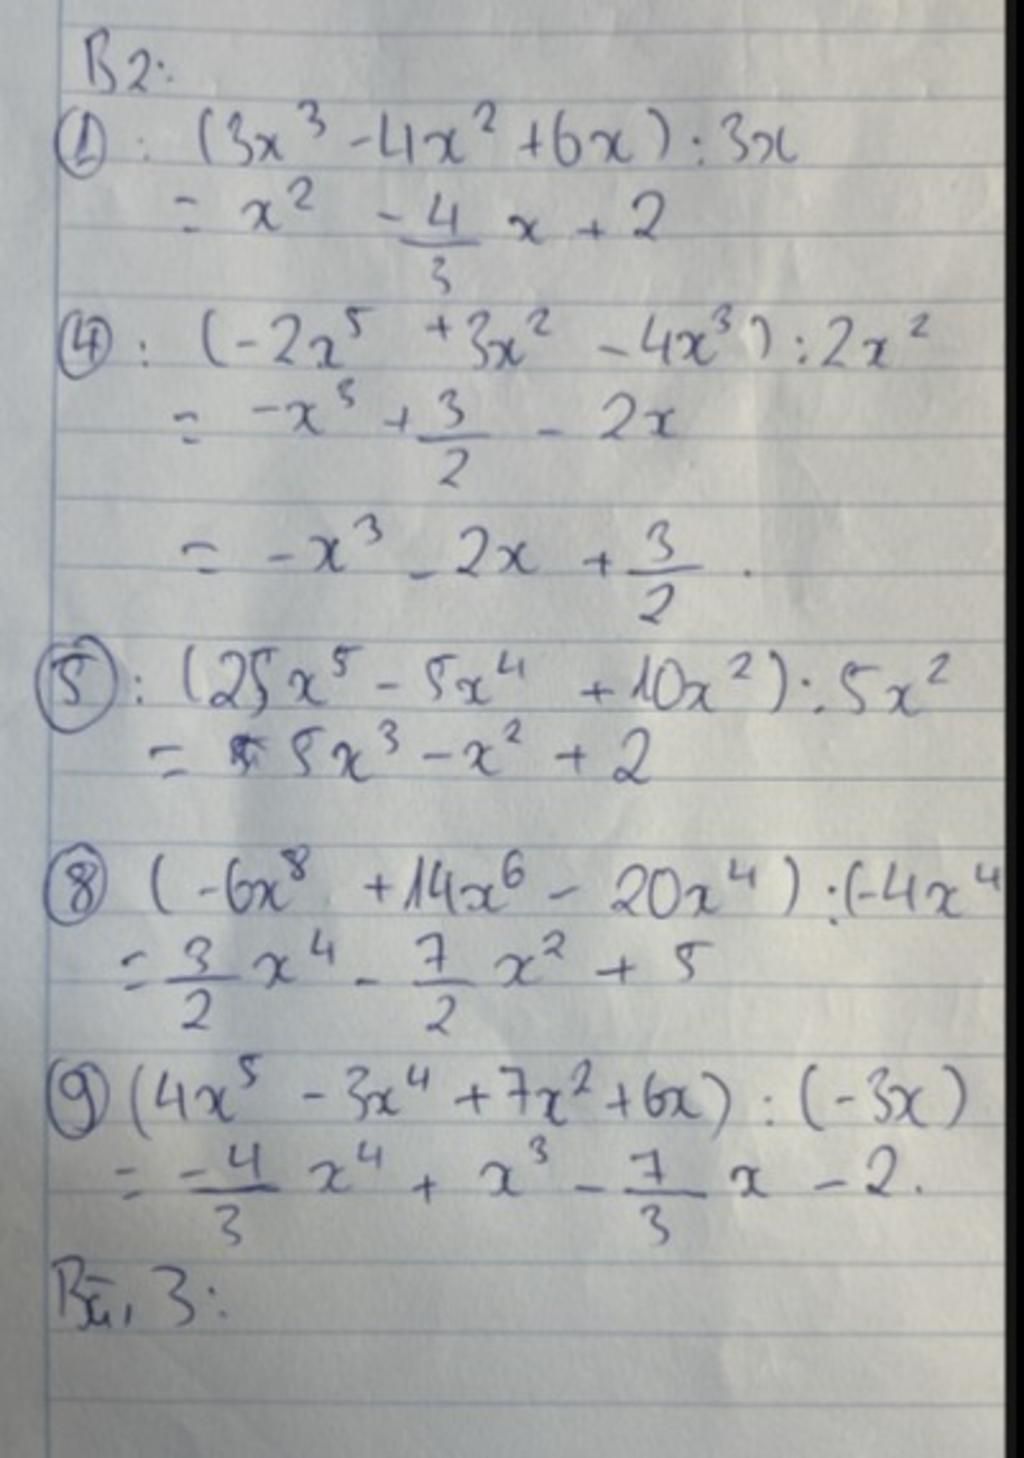 B2:
① : (3x³ - 4x² + 6x) : 3x
= x² - 4/3 x + 2
④ : (-2x⁵ + 3x² - 4x³) : 2x²
= -x³ + 3/2 - 2x
= -x³ - 2x + 3/2 .
⑤ : (25x⁵ - 5x⁴ + 10x²) : 5x²
= 5x³ - x² + 2
⑧ (-6x⁸ + 14x⁶ - 20x⁴) : (-4x⁴
= 3/2 x⁴ - 7/2 x² + 5
⑨ (4x⁵ - 3x⁴ + 7x² + 6x) : (-3x)
= -4/3 x⁴ + x³ - 7/3 x - 2.
Bài 3: